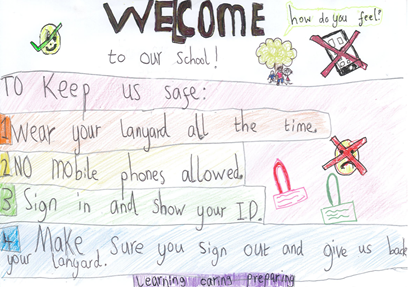 WELCOME
how do you feel?
to our school!
TO Keep us safe:
1 Wear your lanyard all the time.
2 NO mobile phones allowed.
3 Sign in and show your I.D.
4. Make sure you sign out and give us back
your lanyard.
Learning caring preparing